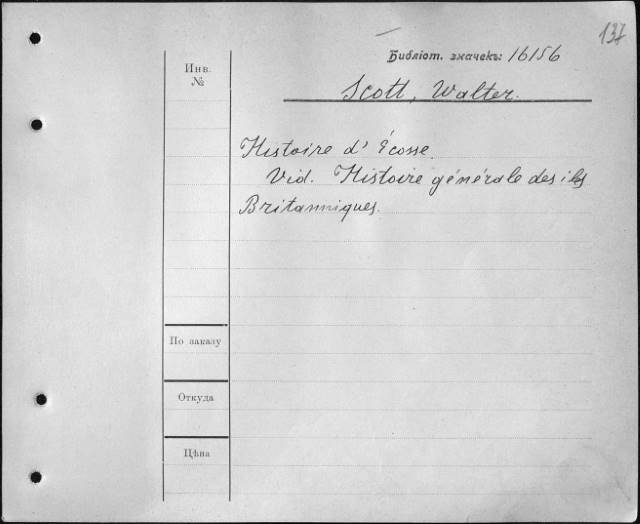 137
Библіот. значекъ: 16156
Инв.
№
Scott, Walter.
Histoire d' Écosse.
Vid. Histoire générale des iles
Britanniques.
По заказу
Откуда
Цѣна